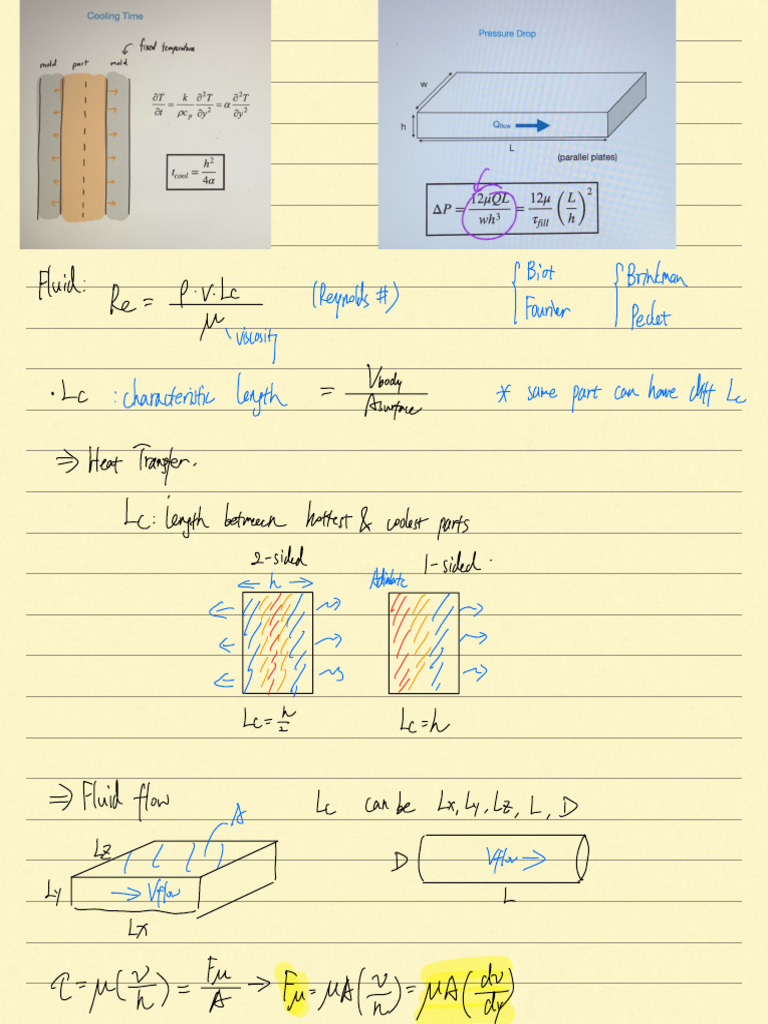 Cooling Time
fixed temperature
mold part mold
∂T/∂t = k/(ρc_p) ∂²T/∂y² = α ∂²T/∂y²
t_cool = h²/4α
Pressure Drop
w
h
Q_flow
L
(parallel plates)
ΔP = 12μQL/wh³ = 12μ/τ_fill (L/h)²
Fluid: Re = ρ·v·Lc/μ (Reynolds #)
viscosity
{ Biot
Fourier
{ Brinkman
Peclet
· Lc : characteristic length = Vbody/Asurface * same part can have diff Lc
⇒ Heat Transfer.
Lc: length between hottest & coolest parts
2-sided
← h →
1-sided.
Lc = h/2
Lc = h
⇒ Fluid flow Lc can be Lx, Ly, Lz, L, D
A
Lz
Ly
→ Vflow
Lx
D
Vflow →
L
τ = μ(v/h) = Fμ/A → Fμ = μA(v/h) = μA(dv/dy)